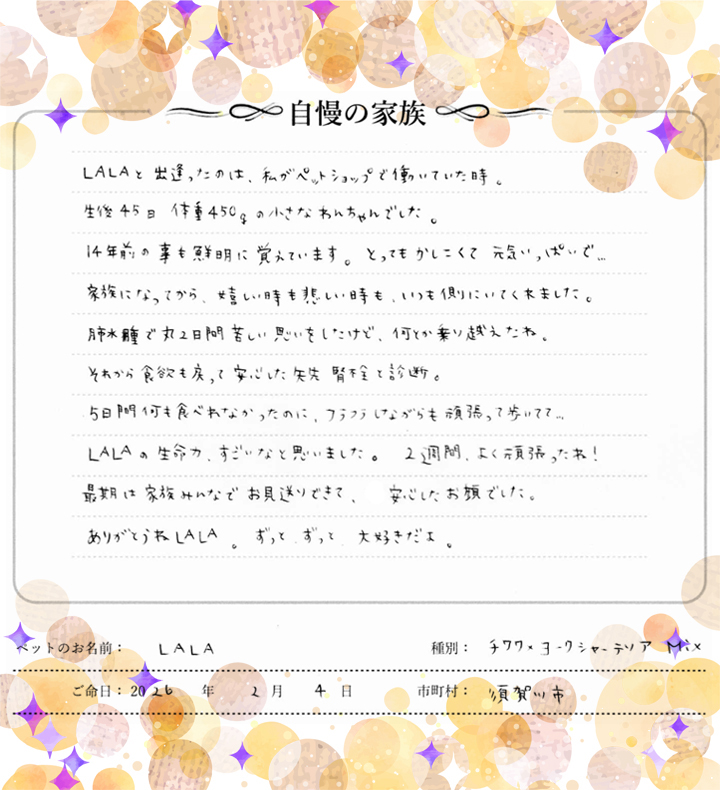 自慢の家族
LALAと出逢ったのは、私がペットショップで働いていた時。
生後45日 体重450gの小さなわんちゃんでした。
14年前の事も鮮明に覚えています。とってもかしこくて 元気いっぱいで…
家族になってから、嬉しい時も悲しい時も、いつも側にいてくれました。
肺水腫で丸2日間苦しい思いをしたけど、何とか乗り越えたね。
それから食欲も戻って安心した矢先 腎栓と診断。
5日間何も食べれなかったのに、フラフラしながらも頑張って歩いてて…
LALAの生命力、すごいなと思いました。 2週間、よく頑張ったね!
最期は家族みんなでお見送りできて、 安心したお顔でした。
ありがとうねLALA 。 ずっと、ずっと、大好きだよ。
ペットのお名前: LALA 種別: チワワ×ヨークシャーテリア Mix
ご命日: 2026 年 2 月 4 日 市町村: 須賀川市